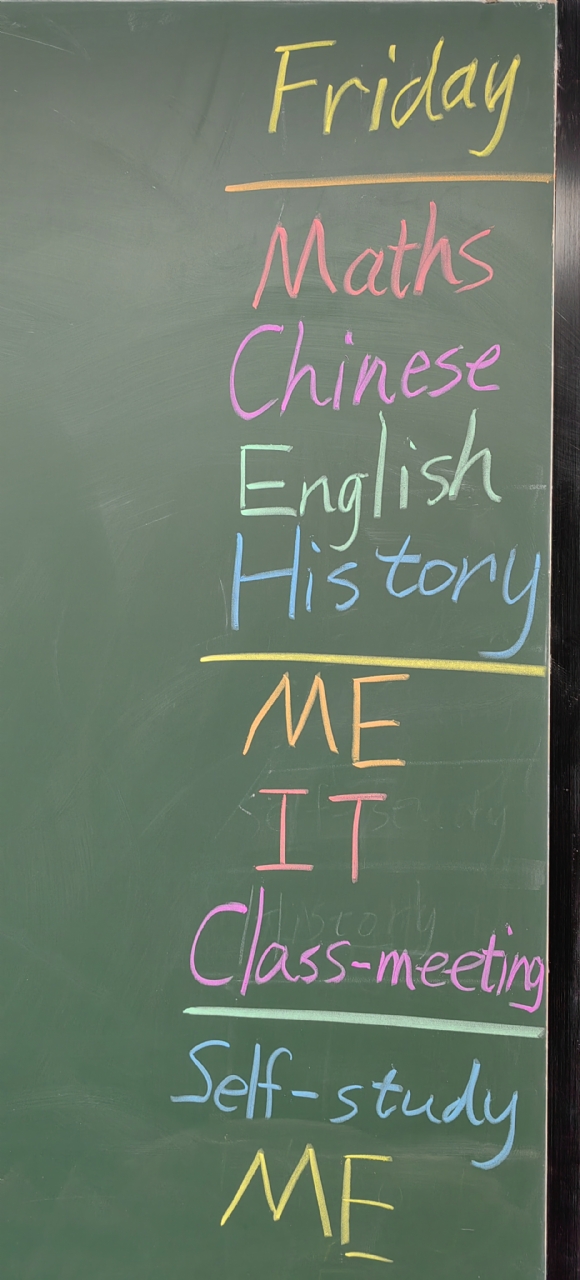 Friday
Maths
Chinese
English
History
ME
IT
Class-meeting
Self-study
ME